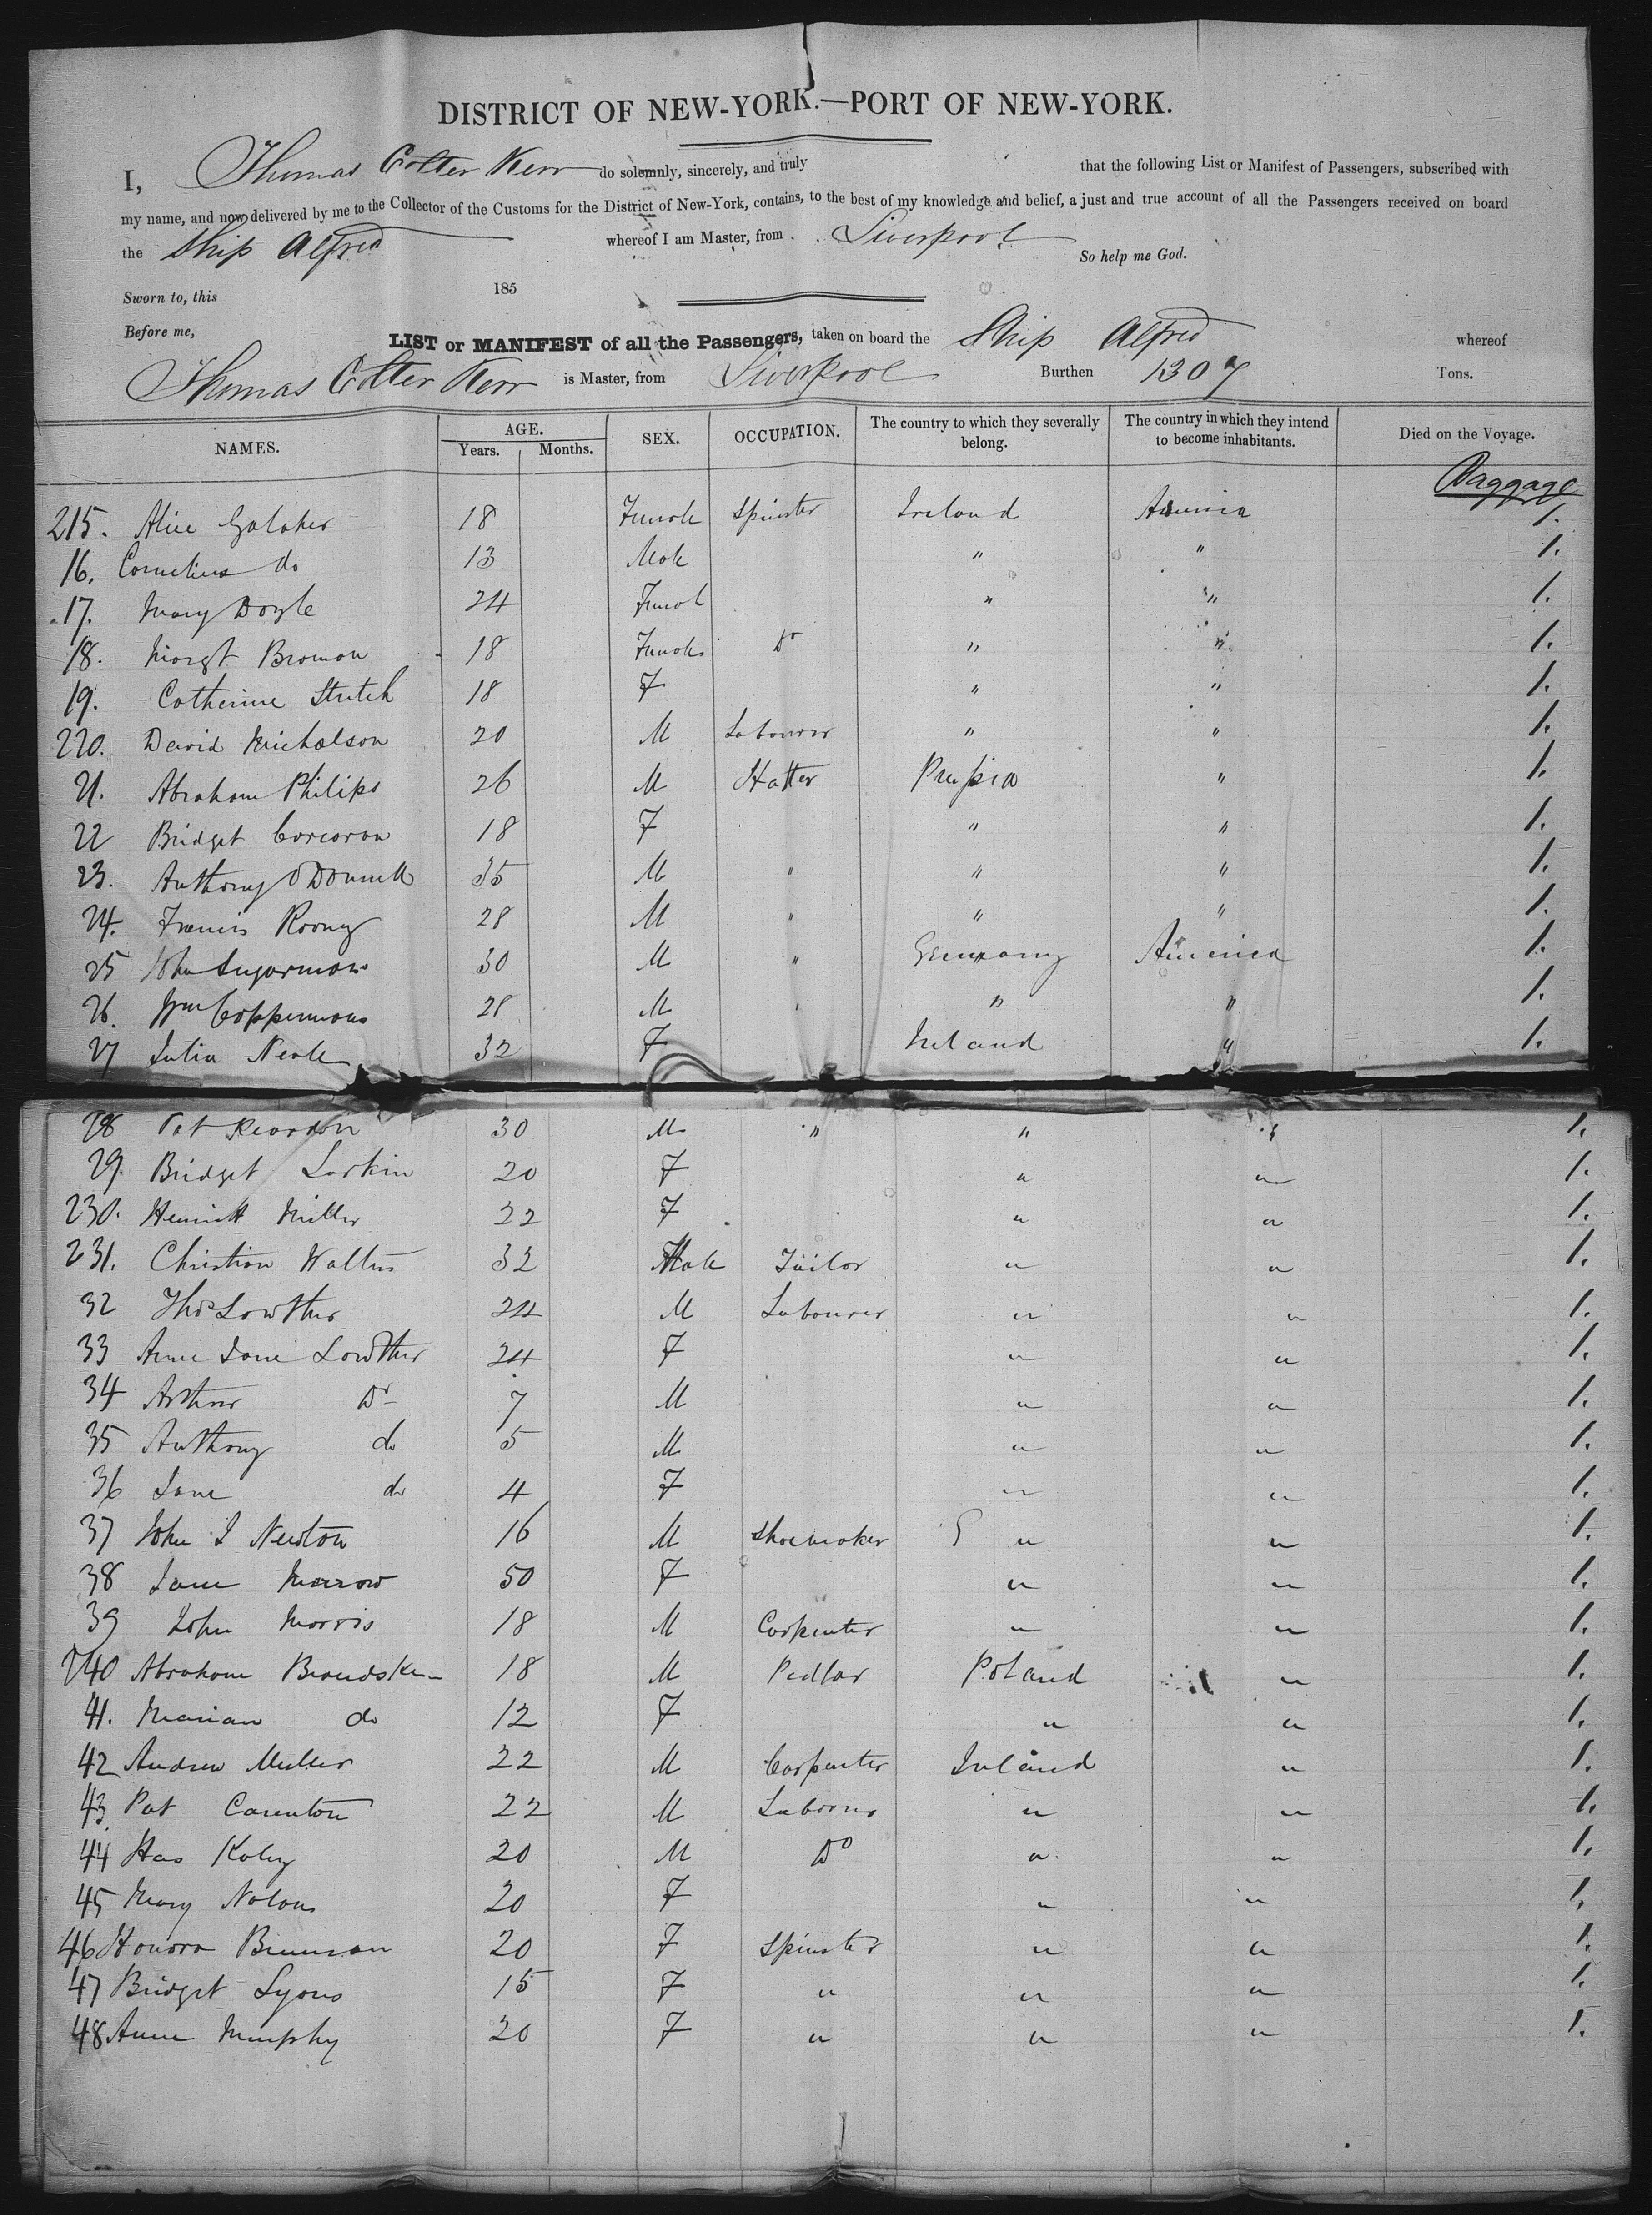 DISTRICT OF NEW-YORK.—PORT OF NEW-YORK.
I, Thomas Colter Kerr do solemnly, sincerely, and truly that the following List or Manifest of Passengers, subscribed with
my name, and now delivered by me to the Collector of the Customs for the District of New-York, contains, to the best of my knowledge and belief, a just and true account of all the Passengers received on board
the Ship Alfred whereof I am Master, from Liverpool So help me God.
Sworn to, this 185
Before me,
LIST or MANIFEST of all the Passengers, taken on board the Ship Alfred whereof
Thomas Colter Kerr is Master, from Liverpool Burthen 1307 Tons.
NAMES. AGE. Years. Months. SEX. OCCUPATION. The country to which they severally belong. The country in which they intend to become inhabitants. Died on the Voyage.
Baggage
215. Alice Galaher 18 Female Spinster Ireland America 1.
16. Cornelius do 13 Male " " 1.
17. Mary Doyle 24 Femal " " 1.
18. Margt 18 Female Do " " 1.
19. Catherine 18 F " " 1.
220. David Nicholson 20 M Labourer " " 1.
21. Abraham Philips 26 M Hatter Prussia " 1.
22 Bridget Corcoran 18 F " " 1.
23. Anthony O Donnell 35 M " " " 1.
24. Francis Roony 28 M " " " 1.
25 John Sugarman 30 M " Germany America 1.
26. Wm 28 M " " " 1.
27 Julia Neale 32 F Ireland " 1.
28 Pat Reardon 30 M " " " 1.
29. Bridget Larkin 20 F " " 1.
230. Miller 22 F " " 1.
231. Christian Walters 32 Male Tailor " " 1.
32 Thos Lowther 24 M Labourer " " 1.
33 Anne Jane Lowther 24 F " " 1.
34 Arthur Do 7 M " " 1.
35 Anthony do 5 M " " 1.
36 Jane do 4 F " " 1.
37 John J Newton 16 M Shoemaker " " 1.
38 Jane Morrow 50 F " " 1.
39 John Morris 18 M Carpenter " " 1.
240 Abraham 18 M Pedlar Poland " 1.
41. Marian do 12 F " " 1.
42 Andrew Muller 22 M Carpenter Ireland " 1.
43. Pat 22 M Labourer " " 1.
44 20 M Do " " 1.
45 Mary Nolan 20 F " " 1.
46 Honora Brennan 20 F Spinster " " 1.
47 Bridget Lyons 15 F " " " 1.
48 Anne Murphy 20 F " " " 1.